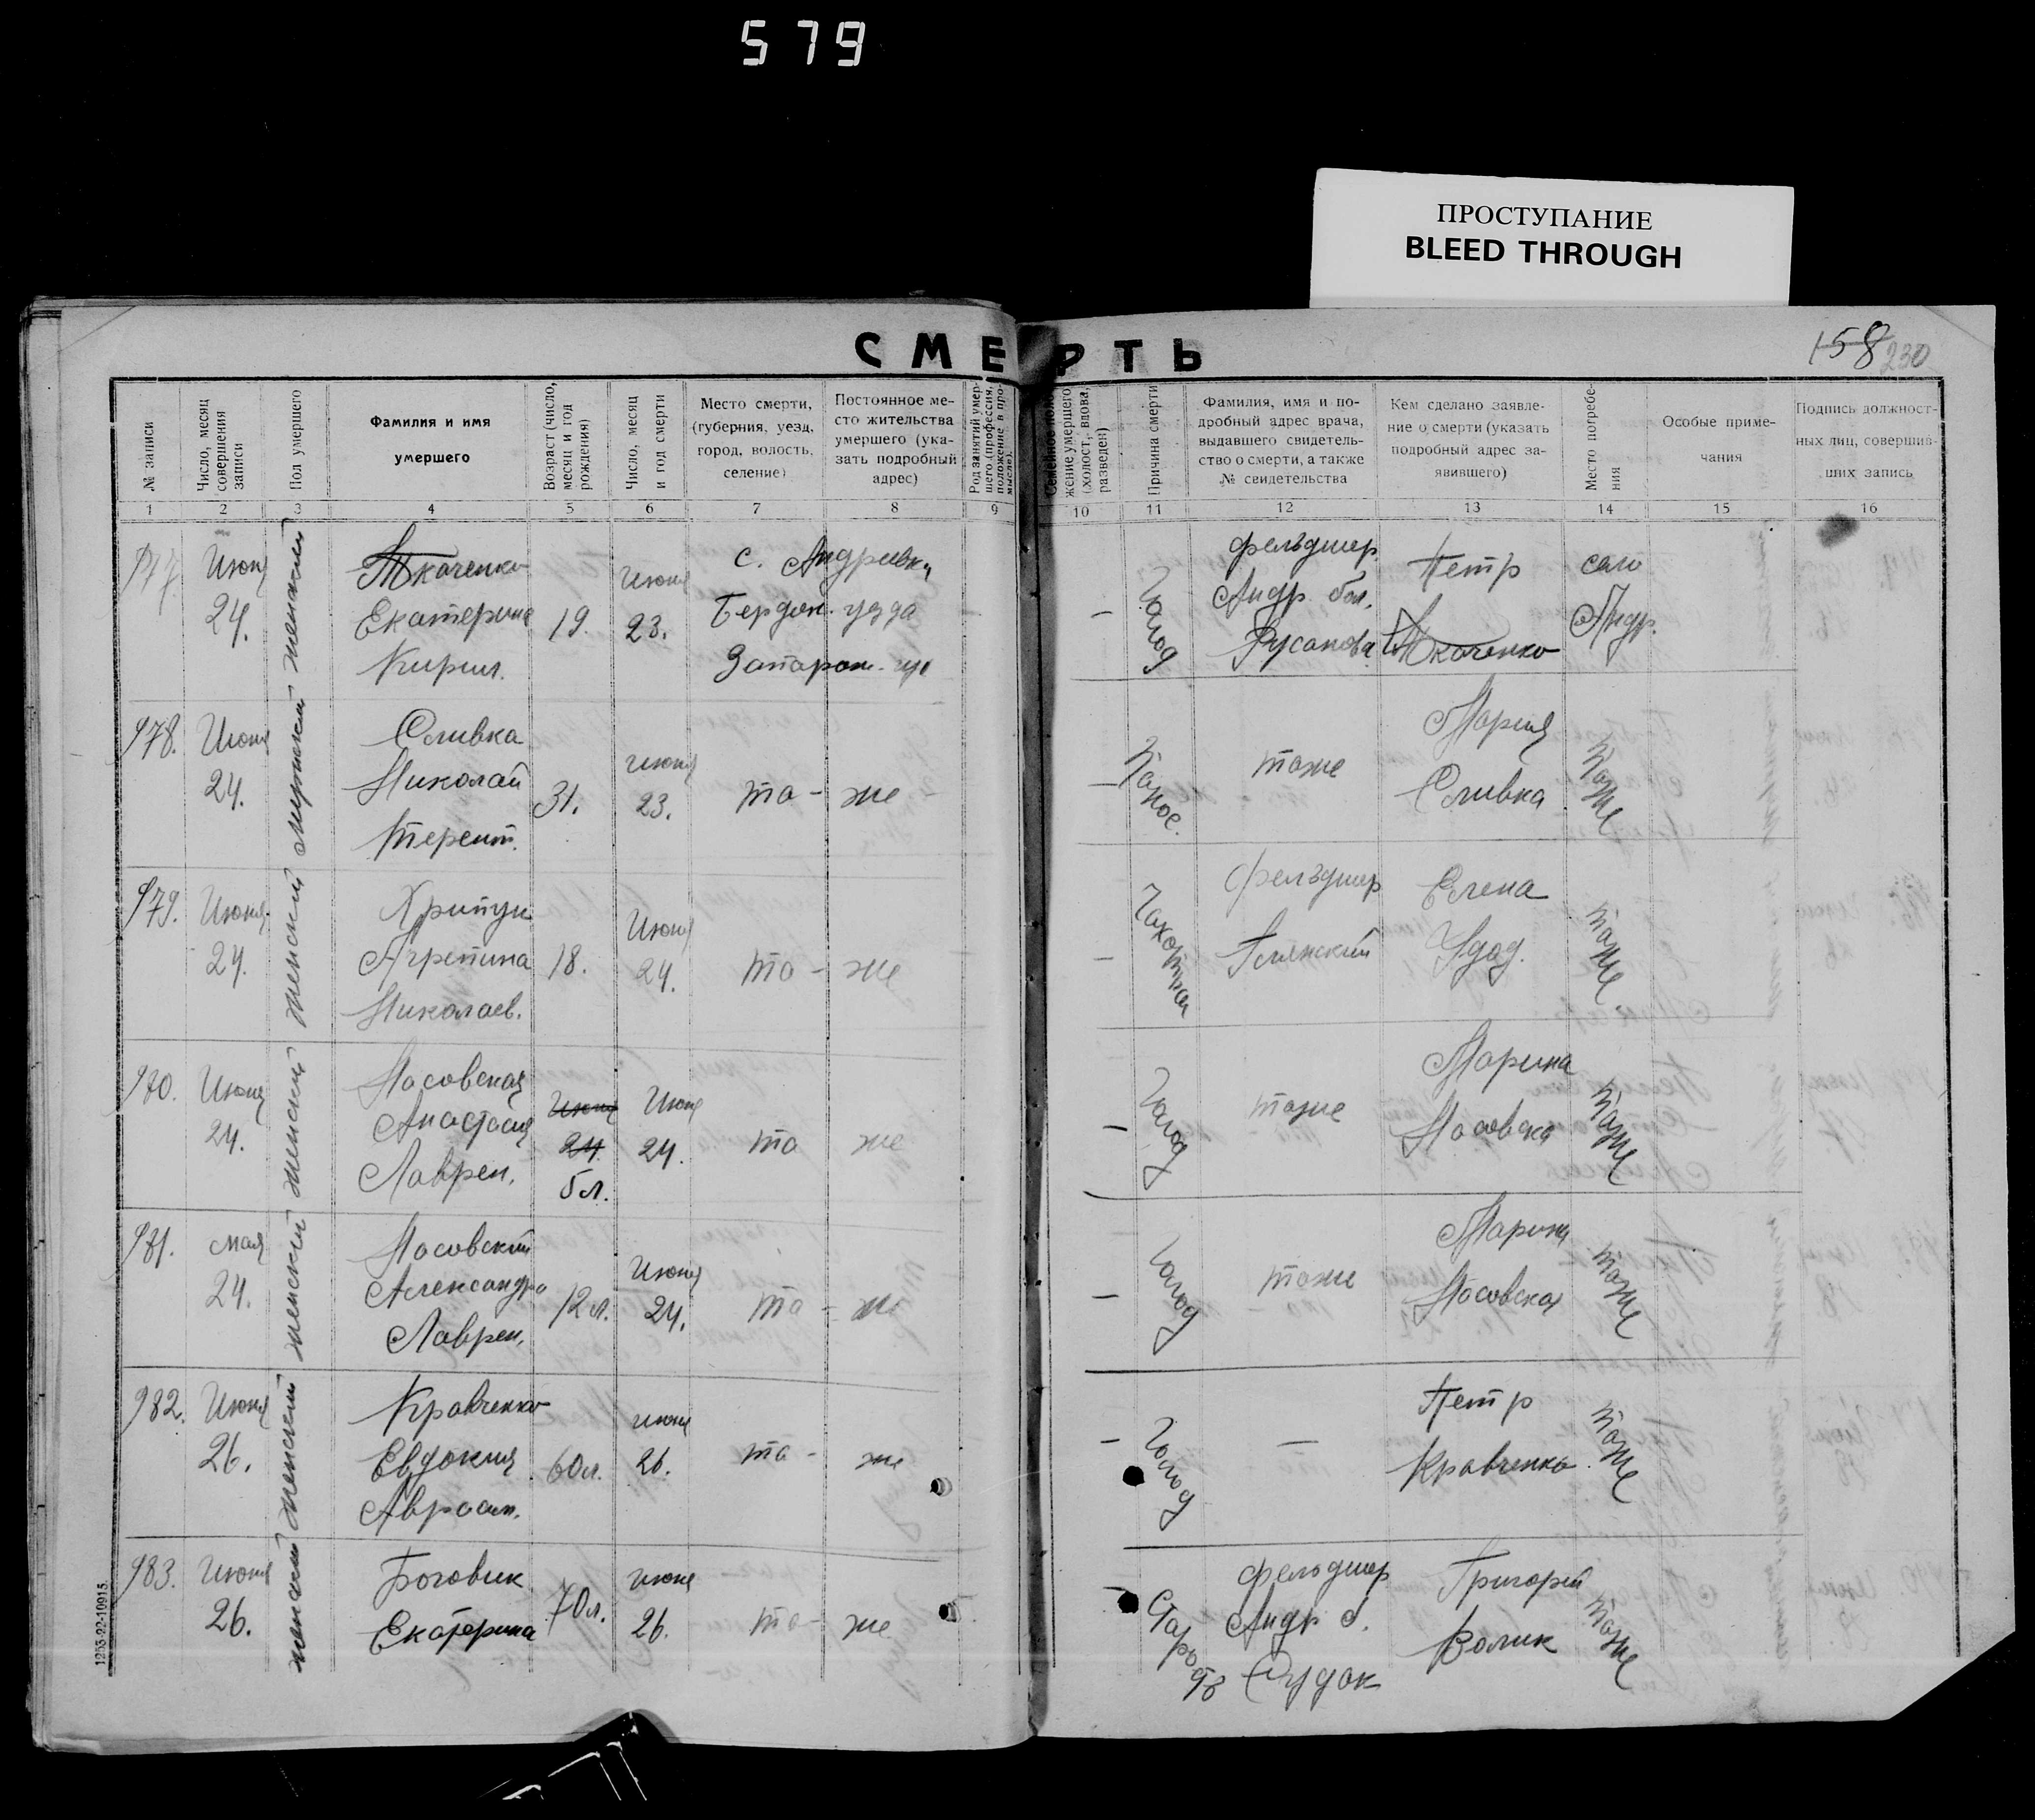 579
ПРОСТУПАНИЕ
BLEED THROUGH
СМЕРТЬ
158 230
№ записи
Число, месяц совершения записи
Пол умершего
Фамилия и имя
умершего
Возраст (число, месяц и год рождения)
Число, месяц и год смерти
Место смерти,
(губерния, уезд,
город, волость,
селение)
Постоянное ме-
сто жительства
умершего (ука-
зать подробный
адрес)
Род занятий умер-
шего (профессия,
положение в про-
мысле)
Семейное поло-
жение умершего
(холост, вдова,
разведен)
Причина смерти
Фамилия, имя и по-
дробный адрес врача,
выдавшего свидетель-
ство о смерти, а также
№ свидетельства
Кем сделано заявле-
ние о смерти (указать
подробный адрес за-
явившего)
Место погребе-
ния
Особые приме-
чания
Подпись должност-
ных лиц, совершив-
ших запись
1 2 3 4 5 6 7 8 9 10 11 12 13 14 15 16
977. Июня 24. женский
Ткаченко
Екатерина
Кирил.
19. Июня 23.
с. Андривки
Бердян. уезда
Запарож. гу
– Голод
фельдшер.
Андр. бол.
Русанова
Петр
Ткаченко
село
Андр.
978. Июня 24. мужской
Сливка
Николай
Терент.
31. июня 23. то - же
– Тоже
тоже
Мария
Сливка
тоже
979. Июня 24. женский
Хрипун
Агрепина
Николаев.
18. Июня 24. то - же
– Чахотка
фельдшер
Елена
Удод.
тоже
980. Июня 24. женский
Носовская
Анастасия
Лаврен.
Июня 24. 6 л. Июня 24. то же
– Голод
тоже
Марина
Носовска
тоже
981. мая 24. женский
Носовский
Александра
Лаврен.
12 л. Июня 24. то - же
– голод
тоже
Марина
Носовская
тоже
982. Июня 26. женский
Кравченко
Евдокия
Авроам.
60 л. июня 26. то - же
– Голод
–
Петр
Кравченко
тоже
983. Июня 26. женский
Боговик
Екатерина
70 л. июня 26. то - же
– Старость
фельдшер
Андр б.
Рудак
Григорий
Волик
тоже
1253-22-10915.